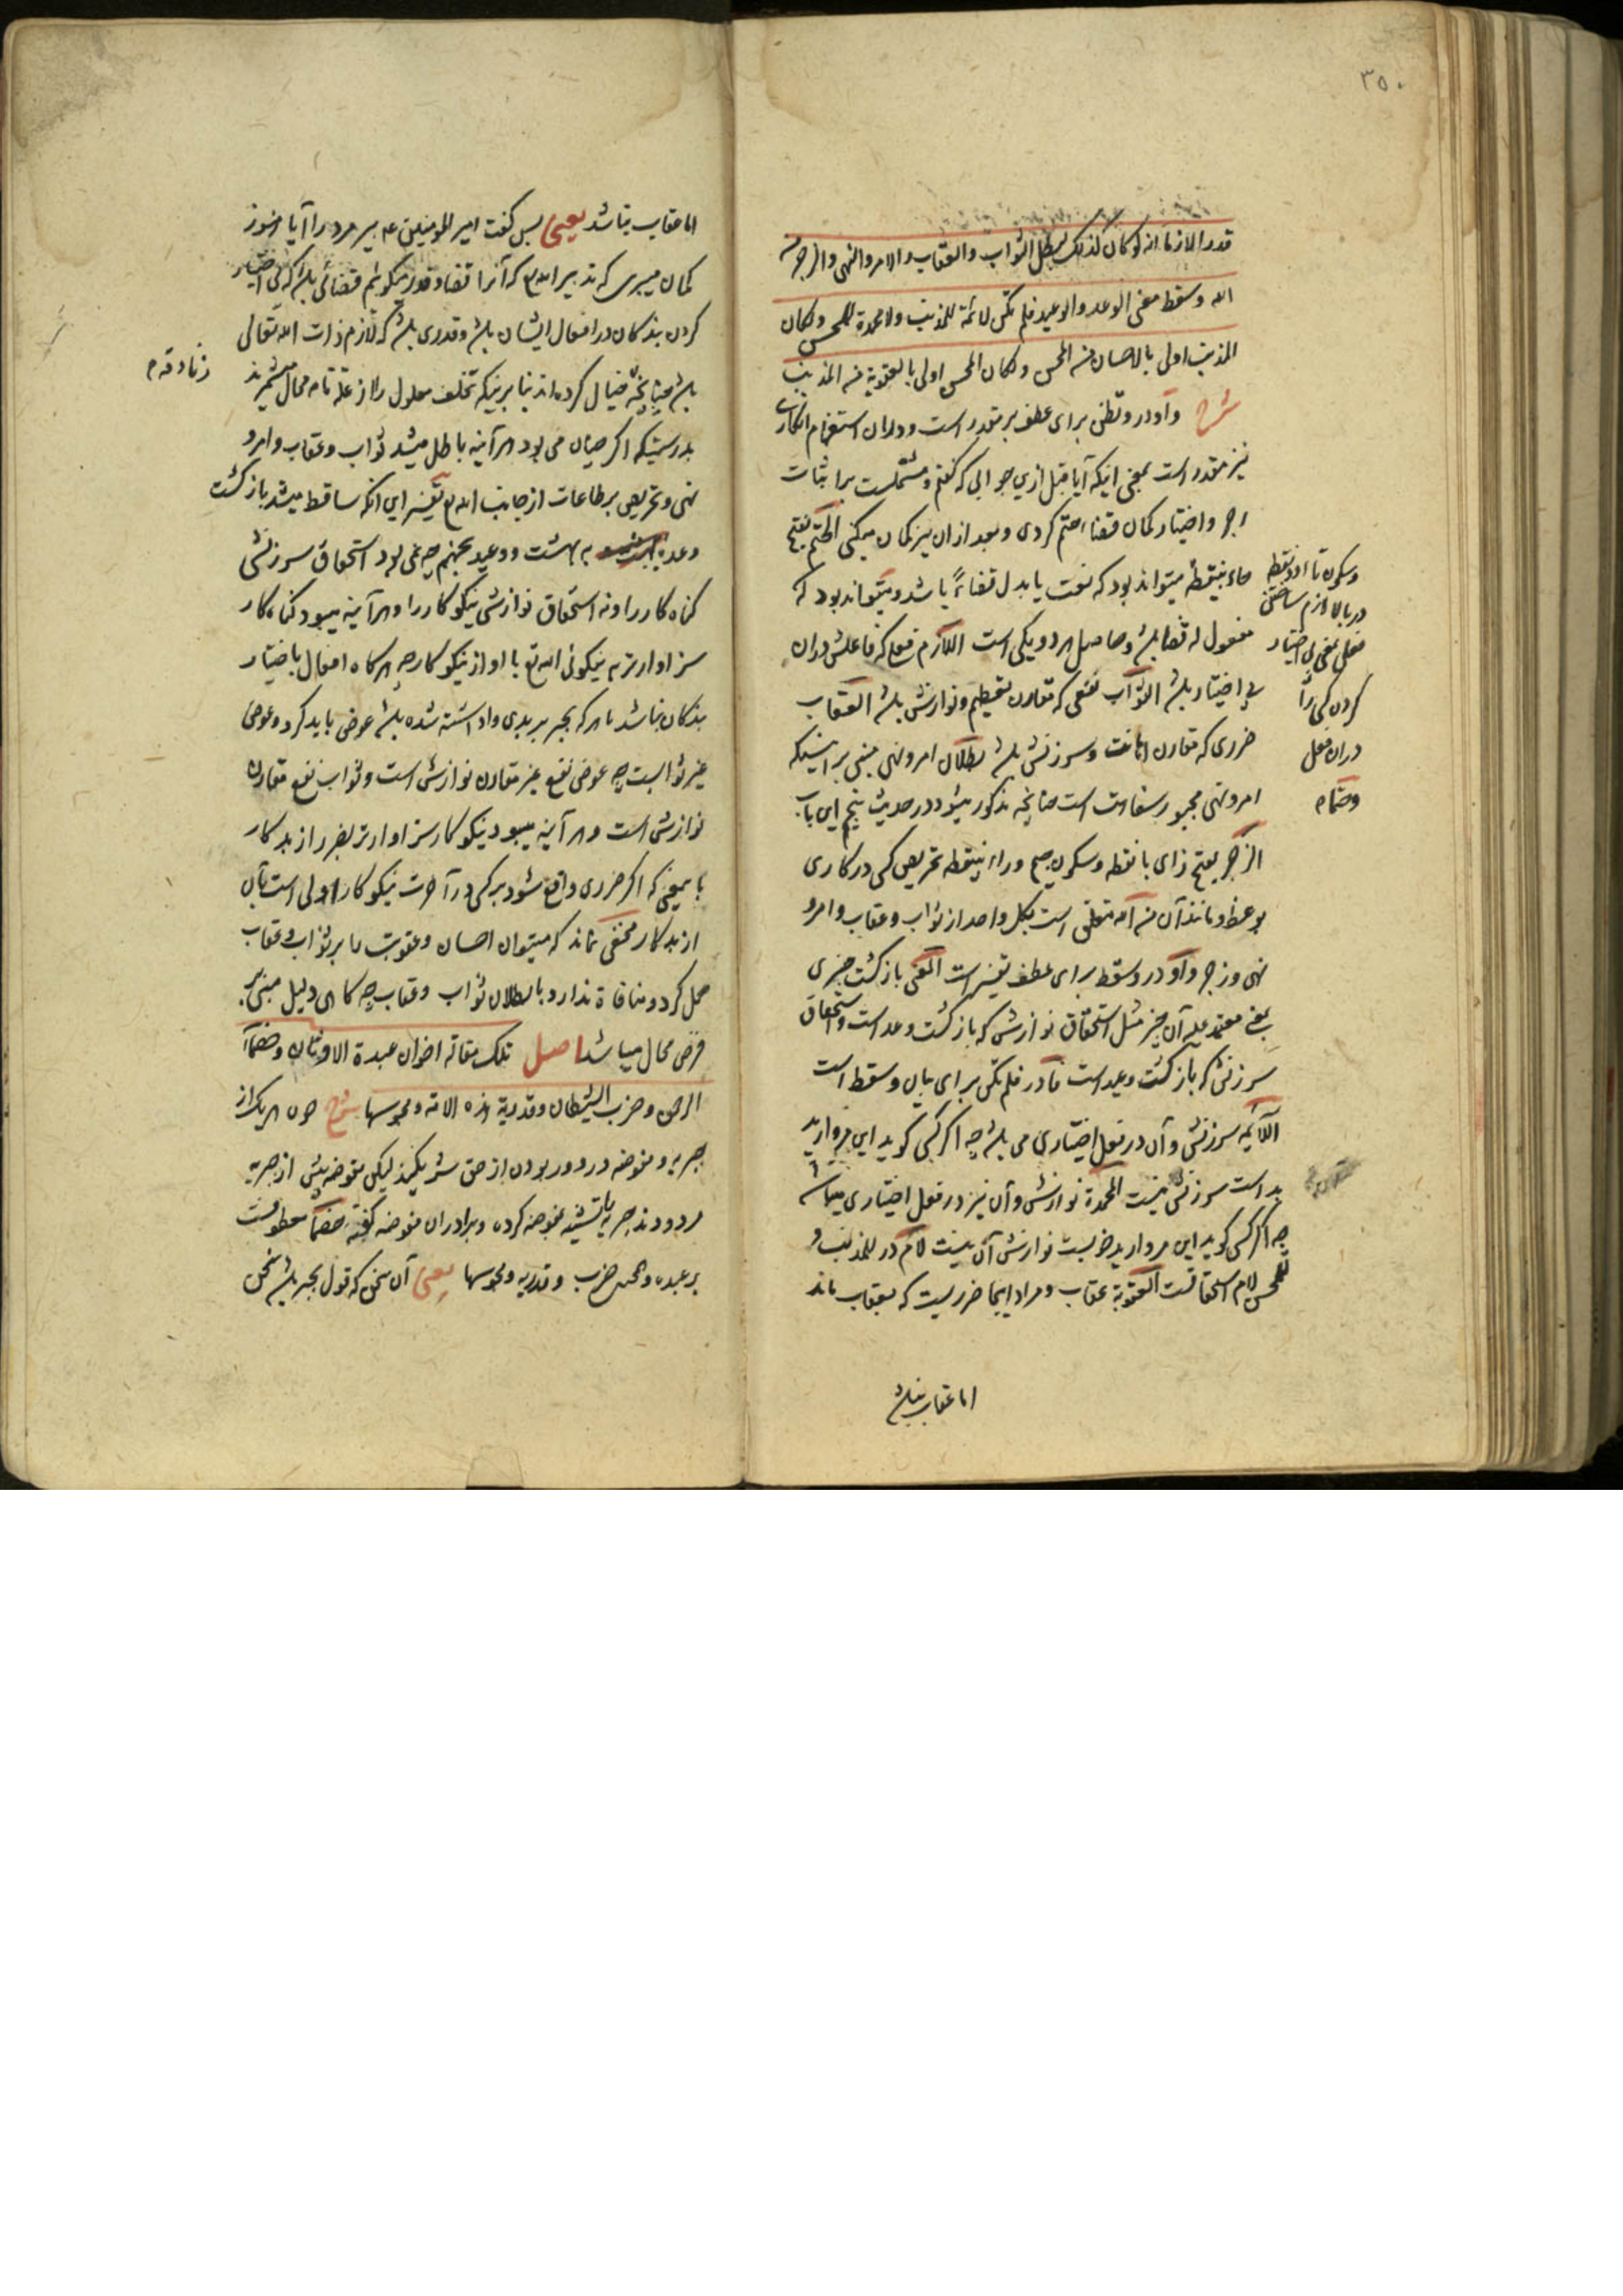 ۳۵۰
قدرا لازما انه لو كان كذلك لبطل الثواب والعقاب والامر والنهى والزجر من
الله وسقط معنى الوعد والوعيد فلم تكن لائمة للمذنب ولا محمدة للمحسن ولكان
المذنب اولى بالاحسان من المحسن ولكان المحسن اولى بالعقوبة من المذنب
شرح واو در وتظن برای عطف بر مقدر است ودران استفهام انکاری
نیز مقدر است بمعنی اینکه آیا قبل ازین جوابی که گفتم ومشتملست بر اثبات
اجر واختیار کمان قضاء حتم کردی وبعد ازان نیز کمان میکنی الحتم بفتح
حاء بینقطه میتواند بود که نعت یا بدل قضاءً باشد ومیتواند بود که
مفعول له قضا باشد وحاصل هر دو یکی است اللازم فعلی که فاعلش دران
بی اختیار باشد الثواب نفعی که مقارن تعظیم ونوازش باشد العقاب
ضرری که مقارن اهانت وسرزنش باشد بطلان امر ونهی مبنی بر اینست که
امر ونهی مجبور سفاهت است چنانچه مذکور میشود در حدیث پنجم این باب
الزجر بفتح زای با نقطه وسکون جیم وراء بینقطه تحریص کسی در کاری
بوعظ ومانند آن من الله متعلق است بکل واحد از ثواب وعقاب وامر و
نهی وزجر واو در وسقط برای عطف تفسیر است المعنی بازگشت چیزی
بمعنی معتمد علیه آن چیز مثل استحقاق نوازش که بازگشت وعد است واستحقاق
سرزنش که بازگشت وعید است فا در فلم تکن برای بیان وسقط است
اللائمه سرزنش وآن در فعل اختیاری می باشد چه اگر کسی گوید این مروارید
بد است سرزنش نیست المحمدة نوازش وآن نیز در فعل اختیاری میباشد
چه اگر کسی گوید این مروارید خوبست نوازش آن نیست لام در للمذنب و
للمحسن لام استحقاقست العقوبة عقاب ومراد اینجا ضرریست که بعقاب ماند
وسکون تا دو نقطه
در بالا لازم ساختن
فعلی بمعنی بی اختیار
کردن کسی را
دران فعل
وحتما م
اما عقاب نباشد
اما عقاب نباشد یعنی پس گفت امیر المؤمنین ع پیر مرد را آیا هنوز
کمان میبری که تدبیر الله که آنرا قضا وقدر میگوئیم قضائی باشد که بی اختیار
کردن بندکان در افعال ایشان باشد وقدری باشد که لازم ذات الله تعالی
باشد چنانچه خیال کرده اند بنا بر اینکه تخلف معلول را از علة تامه محال میشمرند
بدرستیکه اگر چنان می بود هر آینه باطل میشد ثواب وعقاب وامر و
نهی وتحریص بر طاعات از جانب الله تع تفسیر این آنکه ساقط میشد بازگشت
وعده به بهشت ووعید بجهنم چه نمی بود استحقاق سرزنش
گناه کار را ونه استحقاق نوازش نیکو کار را وهر آینه میبود گناه کار
سزاوارتر به نیکوئی الله تع با او از نیکو کار چه هر گاه افعال باختیار
بندکان نباشد هر که بجبر بر بدی واداشته شده باشد عوض باید کرد وعوض
غیر ثوابست چه عوض نفع غیر مقارن نوازش است وثواب نفع مقارن
نوازش است وهر آینه میبود نیکو کار سزاوارتر بضرر از بد کار
باینمعنی که اگر ضرری واقع شود بر کسی در آخرت نیکو کار اولی است بآن
از بد کار مخفی نماند که میتوان احسان وعقوبت را بر ثواب وعقاب
حمل کرد ومنافاة ندارد با بطلان ثواب وعقاب چه گاهی دلیل مبنی بر
فرض محال میباشد اصل تلك مقالة اخوان عبدة الاوثان وخصماء
الرحمن وحزب الشيطان وقدرية هذه الامة ومجوسها شرح چون هر یک از
جبریه ومفوضه در دور بودن از حق شریکند لیکن مفوضه بیش از جبریه
مردودند جبریه را تشبیه بمفوضه کرده وبرادران مفوضه گفته خصماء معطوفست
بر عبده وهمچنین حزب وقدریه ومجوسها یعنی آن سخن که قول بجبر باشد سخن
زنادقه م